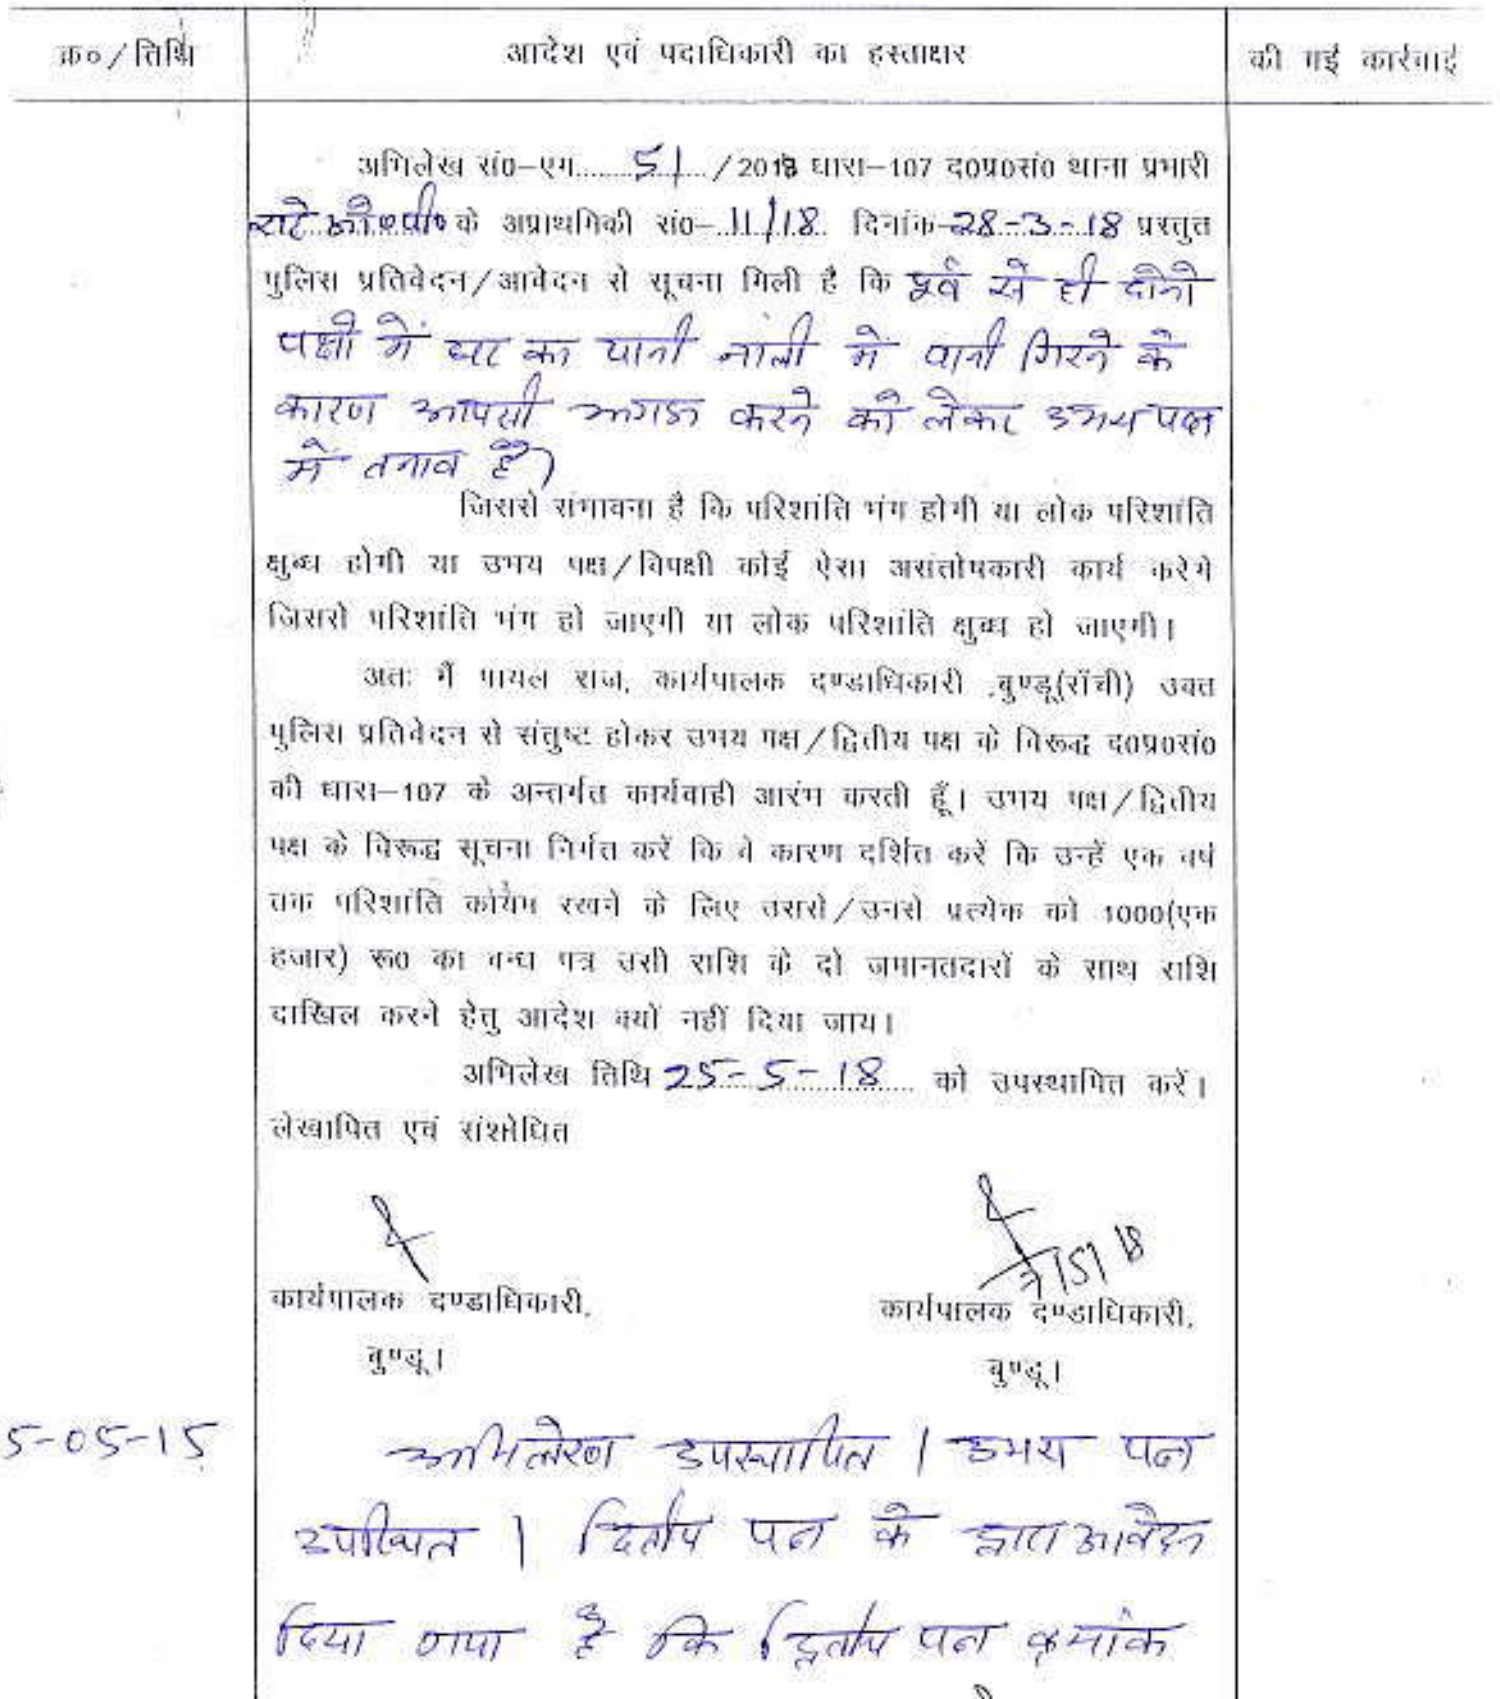 क्र०/तिथि
आदेश एवं पदाधिकारी का हस्ताक्षर
की गई कार्रवाई
अभिलेख सं०-एम......51..../2018 धारा-107 द०प्र०सं० थाना प्रभारी
के अप्राथमिकी सं०-11/18 दिनांक-28-3-18 प्रस्तुत
पुलिस प्रतिवेदन/आवेदन से सूचना मिली है कि पूर्व से ही दोनो
पक्षों में घर का पानी नाली में पानी गिरने के
कारण आपसी झगडा करने को लेकर उभय पक्ष
में तनाव है।
जिससे संभावना है कि परिशांति भंग होगी या लोक परिशांति
क्षुब्ध होगी या उभय पक्ष/विपक्षी कोई ऐसा असंतोषकारी कार्य करेगे
जिससे परिशांति भंग हो जाएगी या लोक परिशांति क्षुब्ध हो जाएगी।
अतः मैं पायल राज, कार्यपालक दण्डाधिकारी ,बुण्डू(राँची) उक्त
पुलिस प्रतिवेदन से संतुष्ट होकर उभय पक्ष/द्वितीय पक्ष के विरूद्ध द०प्र०सं०
की धारा-107 के अन्तर्गत कार्यवाही आरंभ करती हूँ। उभय पक्ष/द्वितीय
पक्ष के विरूद्ध सूचना निर्गत करें कि वे कारण दर्शित करें कि उन्हें एक वर्ष
तक परिशांति कायम रखने के लिए उससे/उनसे प्रत्येक को 1000(एक
हजार) रू० का बन्ध पत्र उसी राशि के दो जमानतदारों के साथ राशि
दाखिल करने हेतु आदेश क्यों नहीं दिया जाय।
अभिलेख तिथि 25-5-18 को उपस्थापित करें।
लेखापित एवं संशोधित
कार्यपालक दण्डाधिकारी,
बुण्डू।
कार्यपालक दण्डाधिकारी,
बुण्डू।
5-05-15
अभिलेख उपस्थापित। उभय पक्ष
उपस्थित। द्वितीय पक्ष के द्वारा आवेदन
दिया गया है कि द्वितीय पक्ष क्रमांक